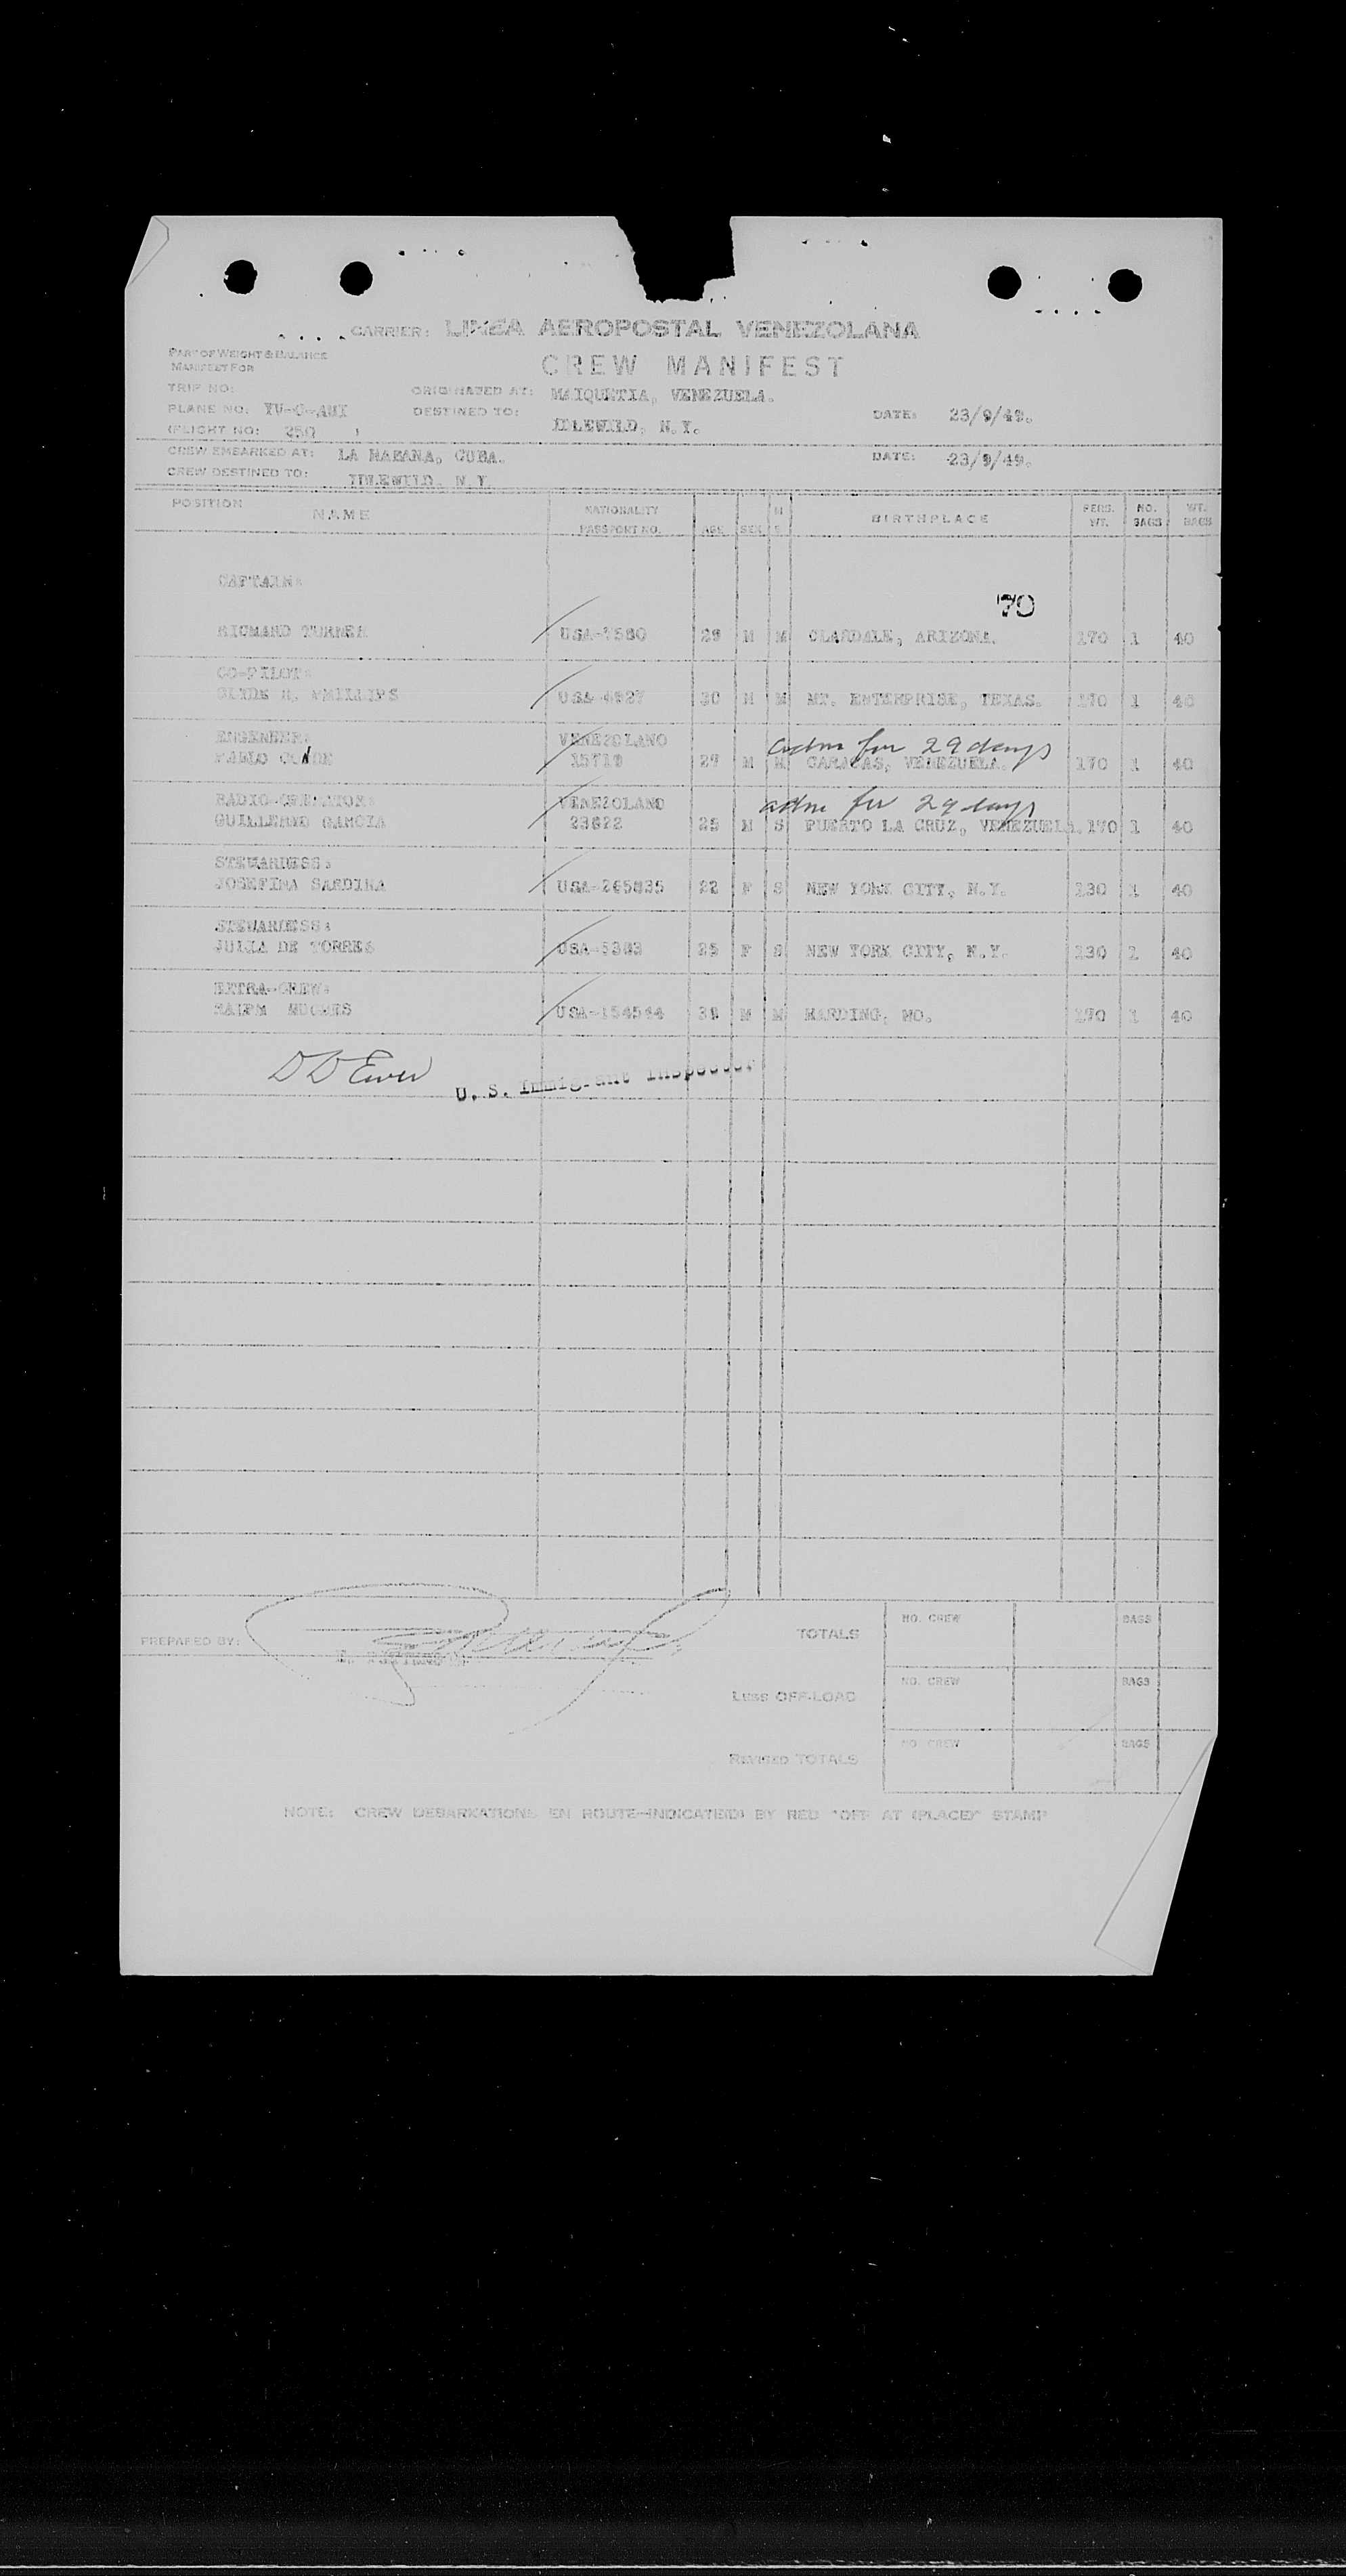 CARRIER: LINEA AEROPOSTAL VENEZOLANA
PART OF WEIGHT & BALANCE
MANIFEST FOR
CREW MANIFEST
TRIP NO: ORIGINATED AT: MAIQUETIA, VENEZUELA.
PLANE NO. YV-C-AUI DESTINED TO: IDLEWILD, N.Y. DATE: 23/9/49.
(FLIGHT NO: 250 )
CREW EMBARKED AT: LA HABANA, CUBA. DATE: 23/9/49.
CREW DESTINED TO: IDLEWILD. N.Y.
POSITION NAME NATIONALITY PASSPORT NO. AGE SEX M S BIRTHPLACE PERS. WT. NO. BAGS WT. BAGS
CAPTAIN:
70
RICHARD TURNER USA-7580 29 M M CLARDALE, ARIZONA. 170 1 40
CO-PILOT:
CLYDE H. PHILLIPS USA-4927 30 M M MT. ENTERPRISE, TEXAS. 170 1 40
ENGENEER: VENEZOLANO adm for 29 days
PABLO CONDE 15719 27 M M CARACAS, VENEZUELA. 170 1 40
RADIO-OPERATOR: VENEZOLANO adm for 29 days
GUILLERMO GARCIA 23622 25 M S PUERTO LA CRUZ, VENEZUELA. 170 1 40
STEWARDESS:
JOSEFINA SARDINA USA-265835 22 F S NEW YORK CITY, N.Y. 130 1 40
STEWARDESS:
JULIA DE TORRES USA-5383 25 F S NEW YORK CITY, N.Y. 130 1 40
EXTRA-CREW:
RALPH HUGHES USA-154544 38 M M HARDING, MO. 170 1 40
D D Ewer U. S. Immigrant Inspector
PREPARED BY:
TOTALS NO. CREW BAGS
LESS OFF-LOAD NO. CREW BAGS
REVISED TOTALS NO. CREW BAGS
NOTE: CREW DEBARKATIONS EN ROUTE-INDICATE(D) BY RED "OFF AT (PLACE)" STAMP